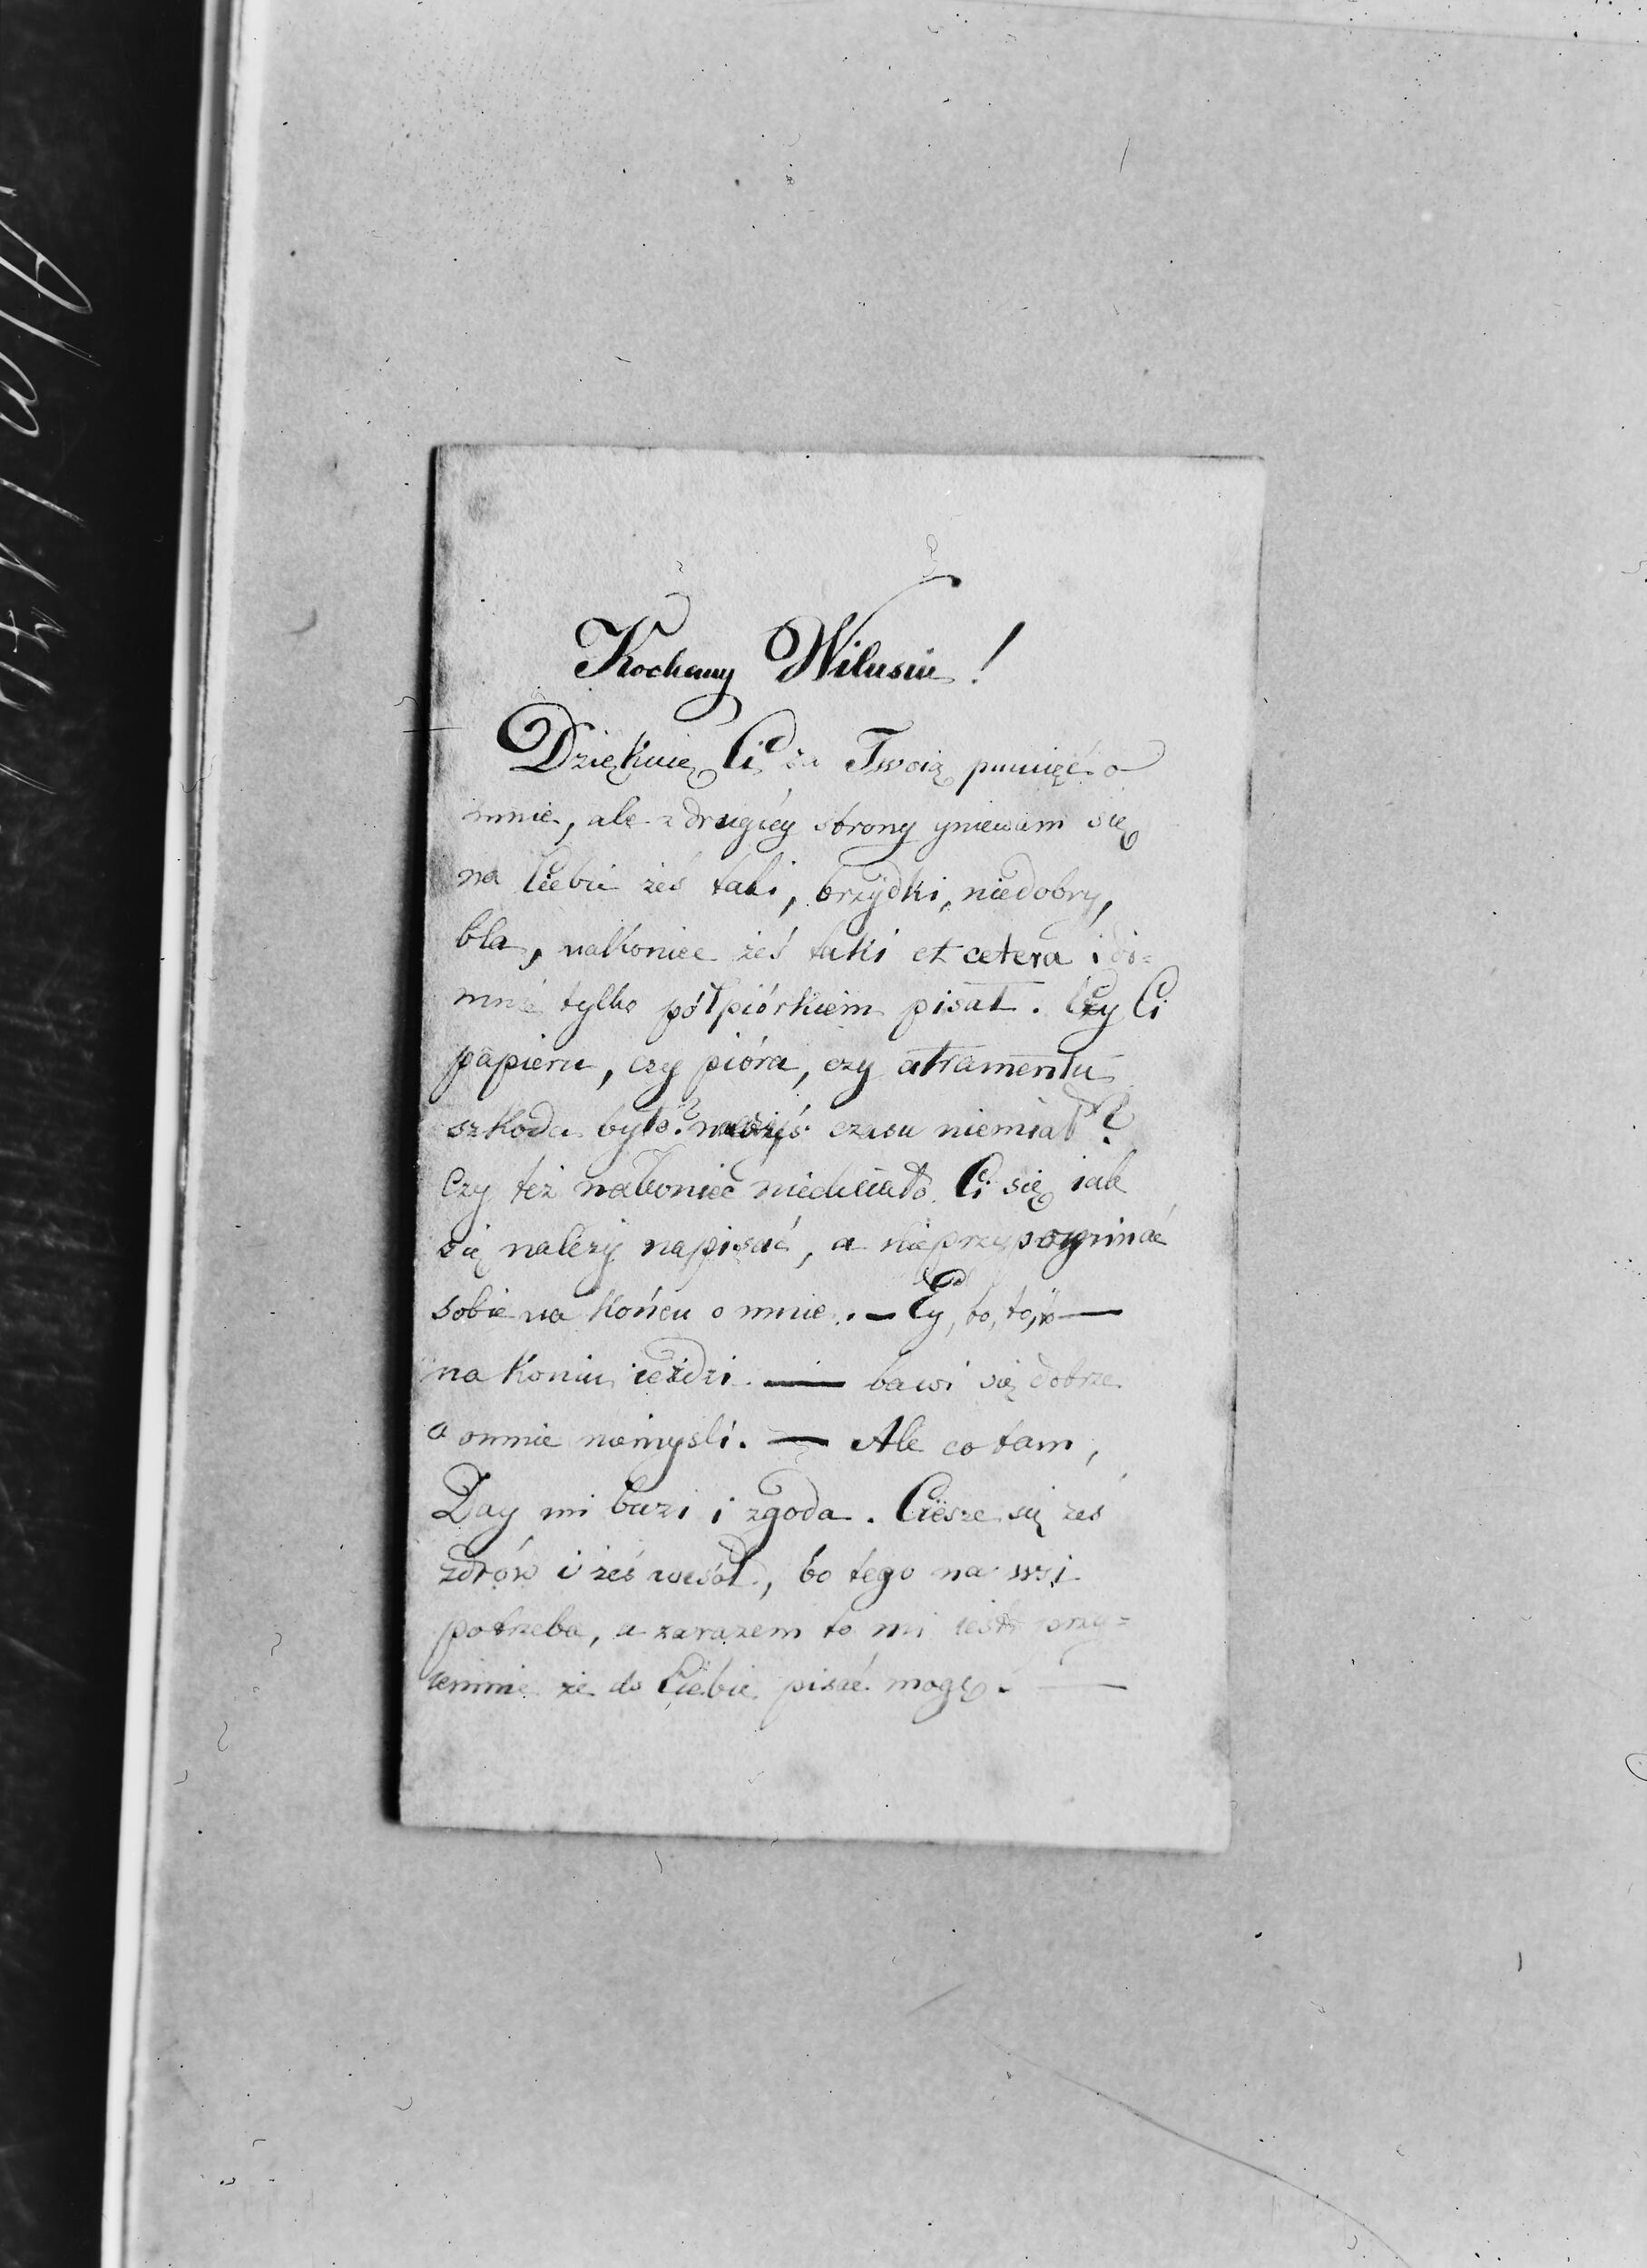 Kochany Wilusiu!
Dziękuię Ci za Twoią pamięć o
mnie, ale z drugiéy strony gniewam się
na Ciebie żeś taki, brzÿdki, niedobry,
bla, nakoniec żeś taki et cetera i do=
mnie tylko półpiórkiem pisał. Czy Ci
papieru, czy pióra, czy atramentu
szkoda było? czasu niemiał?
Czy też nakoniec niechciało Ci się iak
się należy napisać, a nieprzypominać
sobie na końcu o mnie. — Ey, to, to, to —
na koniu ieździ — bawi się dobrze
a omnie niemyśli. — Ale co tam,
Day mi buzi i zgoda. Ciesze się żeś
zdrów i żeś wesół, bo tego na wsi
potrzeba, a zarazem to mi iest przy=
iemnie że do Ciebie pisać mogę. —